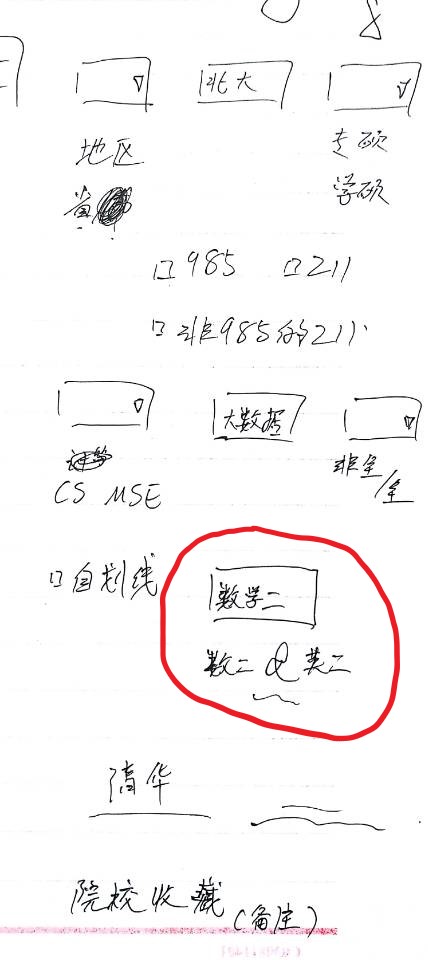 北大
地区 专硕
学硕
口985 口211
口非985的211
大数据
非全/全
CS MSE
口自划线 数学二
数二 & 英二
清华
院校收藏(备注)